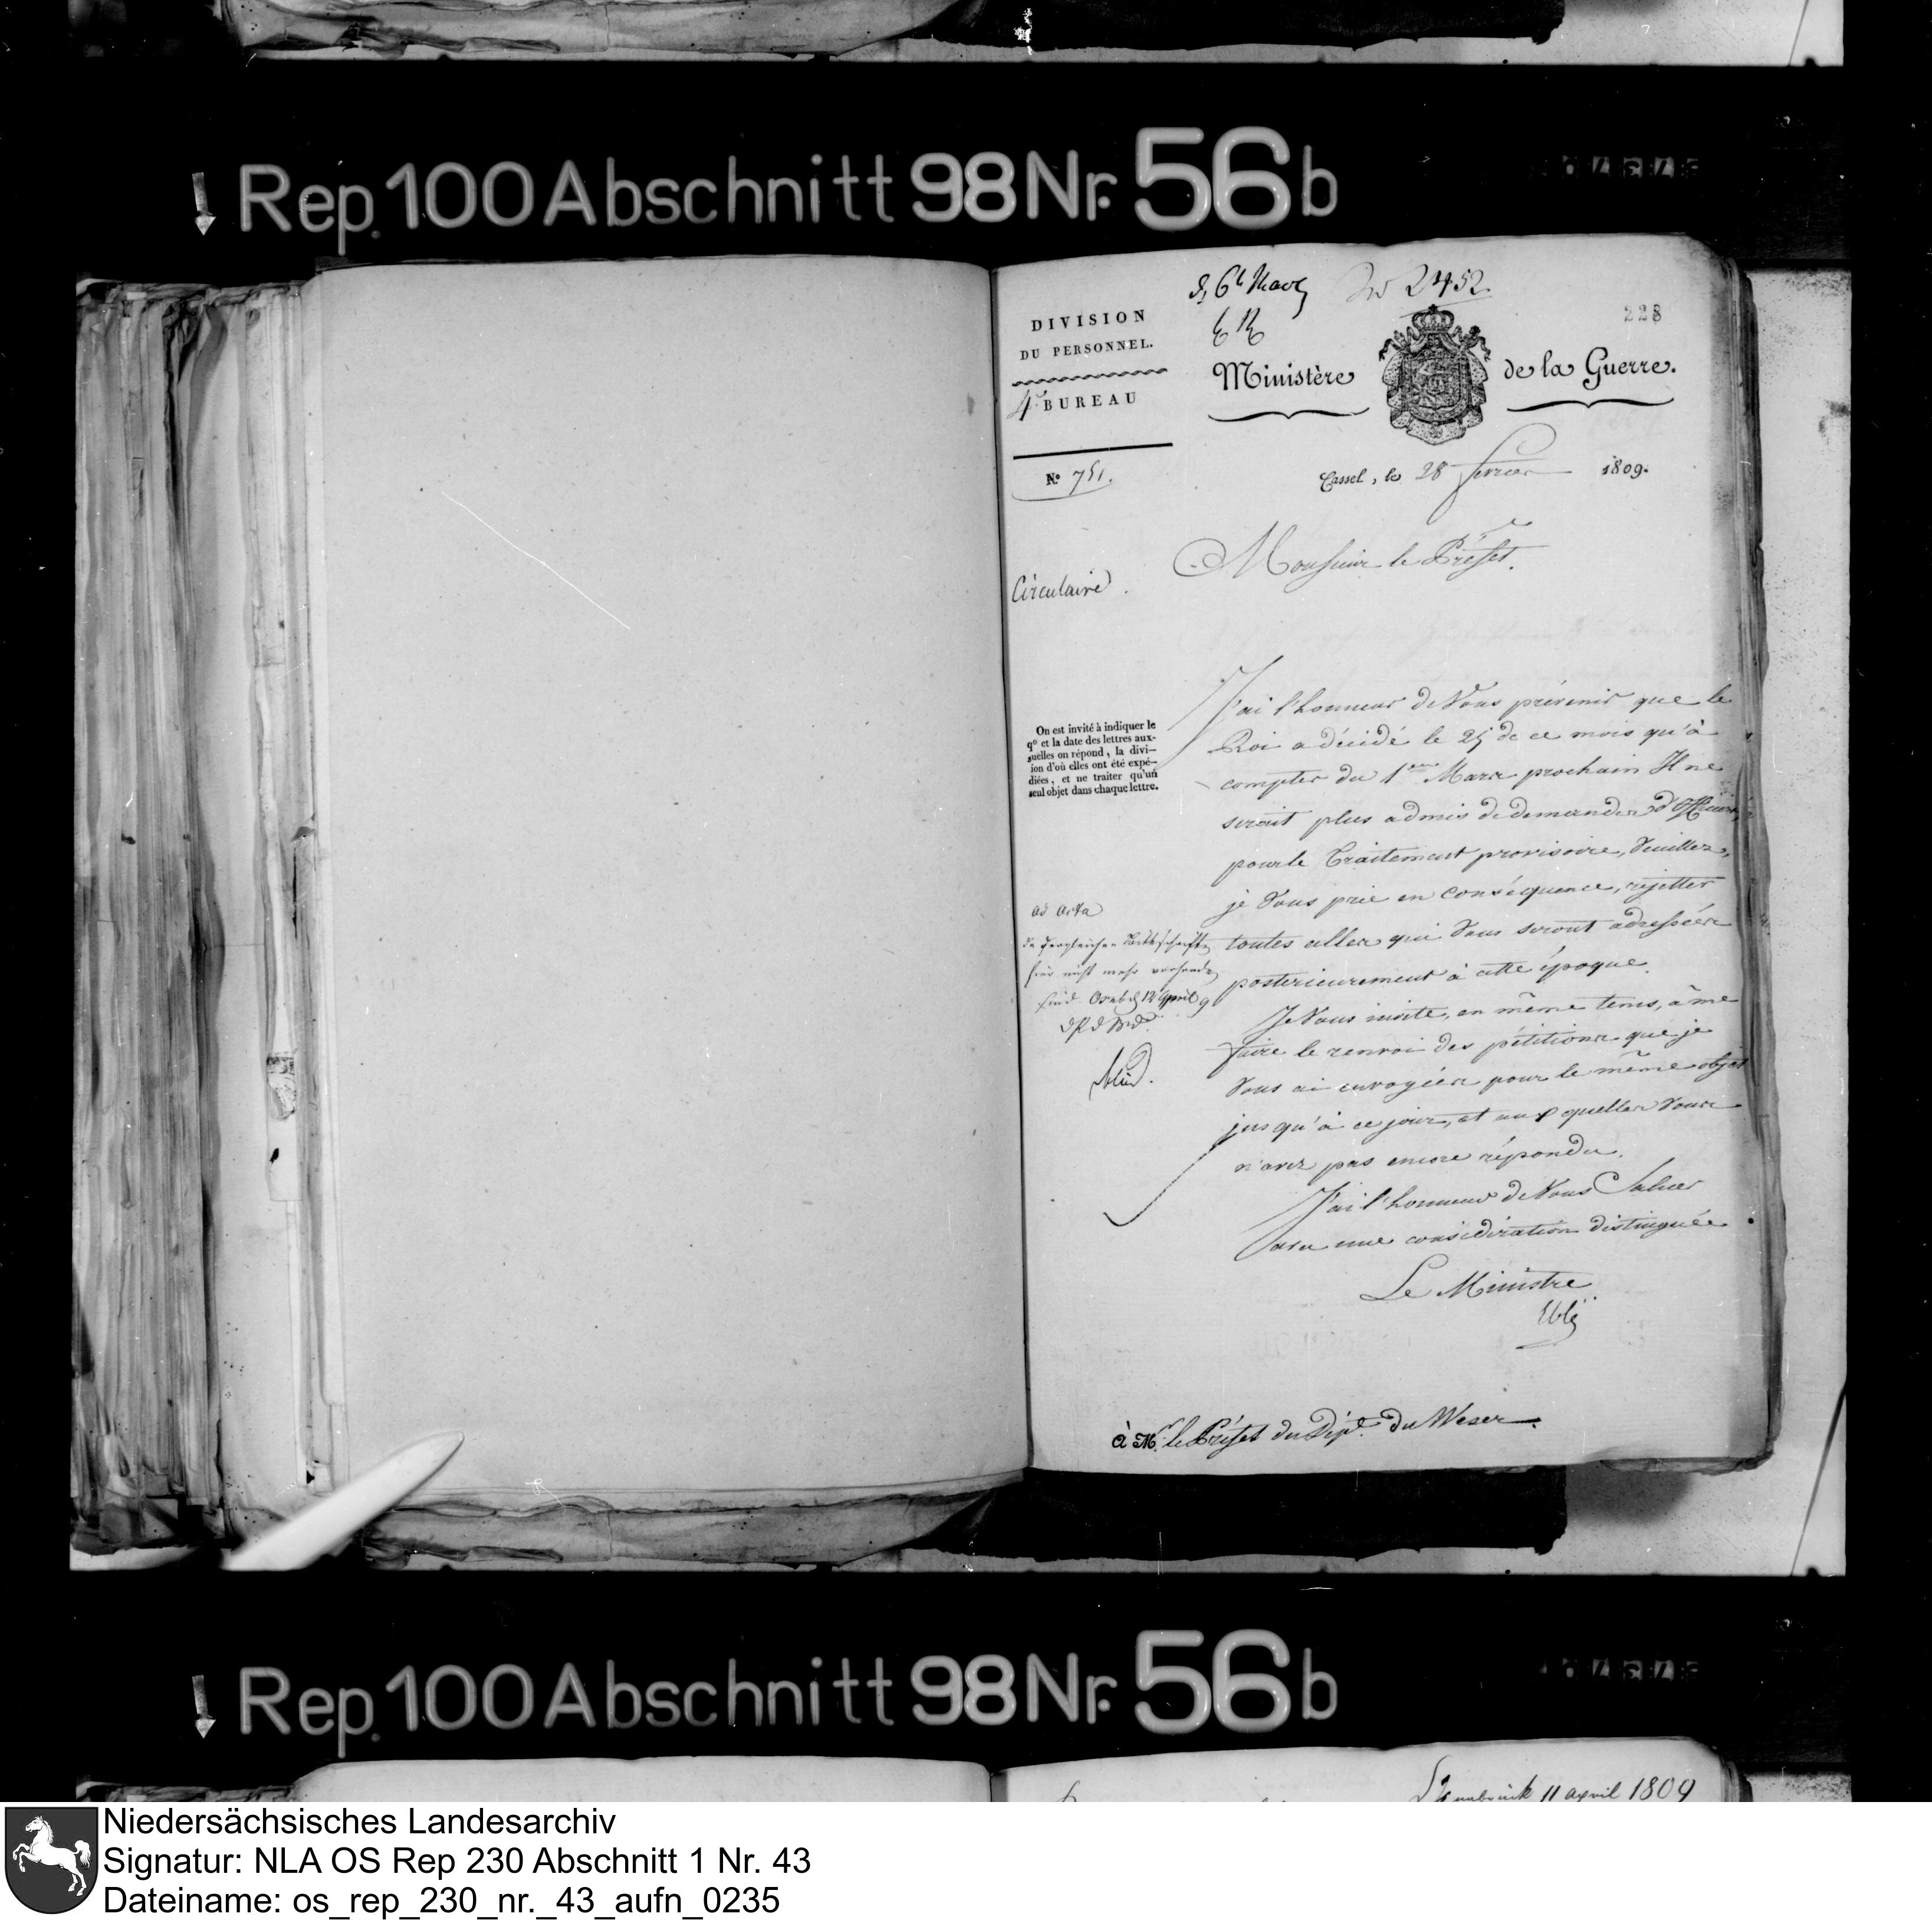 Rep. 100 Abschnitt 98 Nr. 56 b
No 2452
228
DIVISION
DU PERSONNEL.
4e BUREAU
No 751.
Ministère de la Guerre.
Cassel, le 28 fevrier 1809.
Circulaire.
Monsieur le Préfet.
On est invité à indiquer le
qo et la date des lettres aux-
quelles on répond, la divi-
ion d'où elles ont été expé-
diées, et ne traiter qu'un
seul objet dans chaque lettre.
J'ai l'honneur de Vous prévenir que le
Roi a décidé le 25 de ce mois qu'à
compter du 1er Mars prochain Il ne
serait plus admis de demandes d'Officiers
pour le Traitement provisoire, Veuillez,
je Vous prie en conséquence, rejetter
toutes celles qui Vous seront adressées
posterieurement à cette époque.
Je Vous invite, en même tems, à me
faire le renvoi des pétitions que je
Vous ai envoyées pour le même objet
jusqu'à ce jour, et auxquelles Vous
n'avez pas encore répondu.
J'ai l'honneur de Vous Saluer
avec une considération distinguée
Le Ministre
Eblé
ad acta
da dergleichen Bittschriften
hier nicht mehr vorhanden
sind. Osnab. d 12 April 9
à Mr. le Préfet du Dépt. du Weser.
Rep. 100 Abschnitt 98 Nr. 56 b
Osnabrück 11 april 1809
Niedersächsisches Landesarchiv
Signatur: NLA OS Rep 230 Abschnitt 1 Nr. 43
Dateiname: os_rep_230_nr._43_aufn_0235